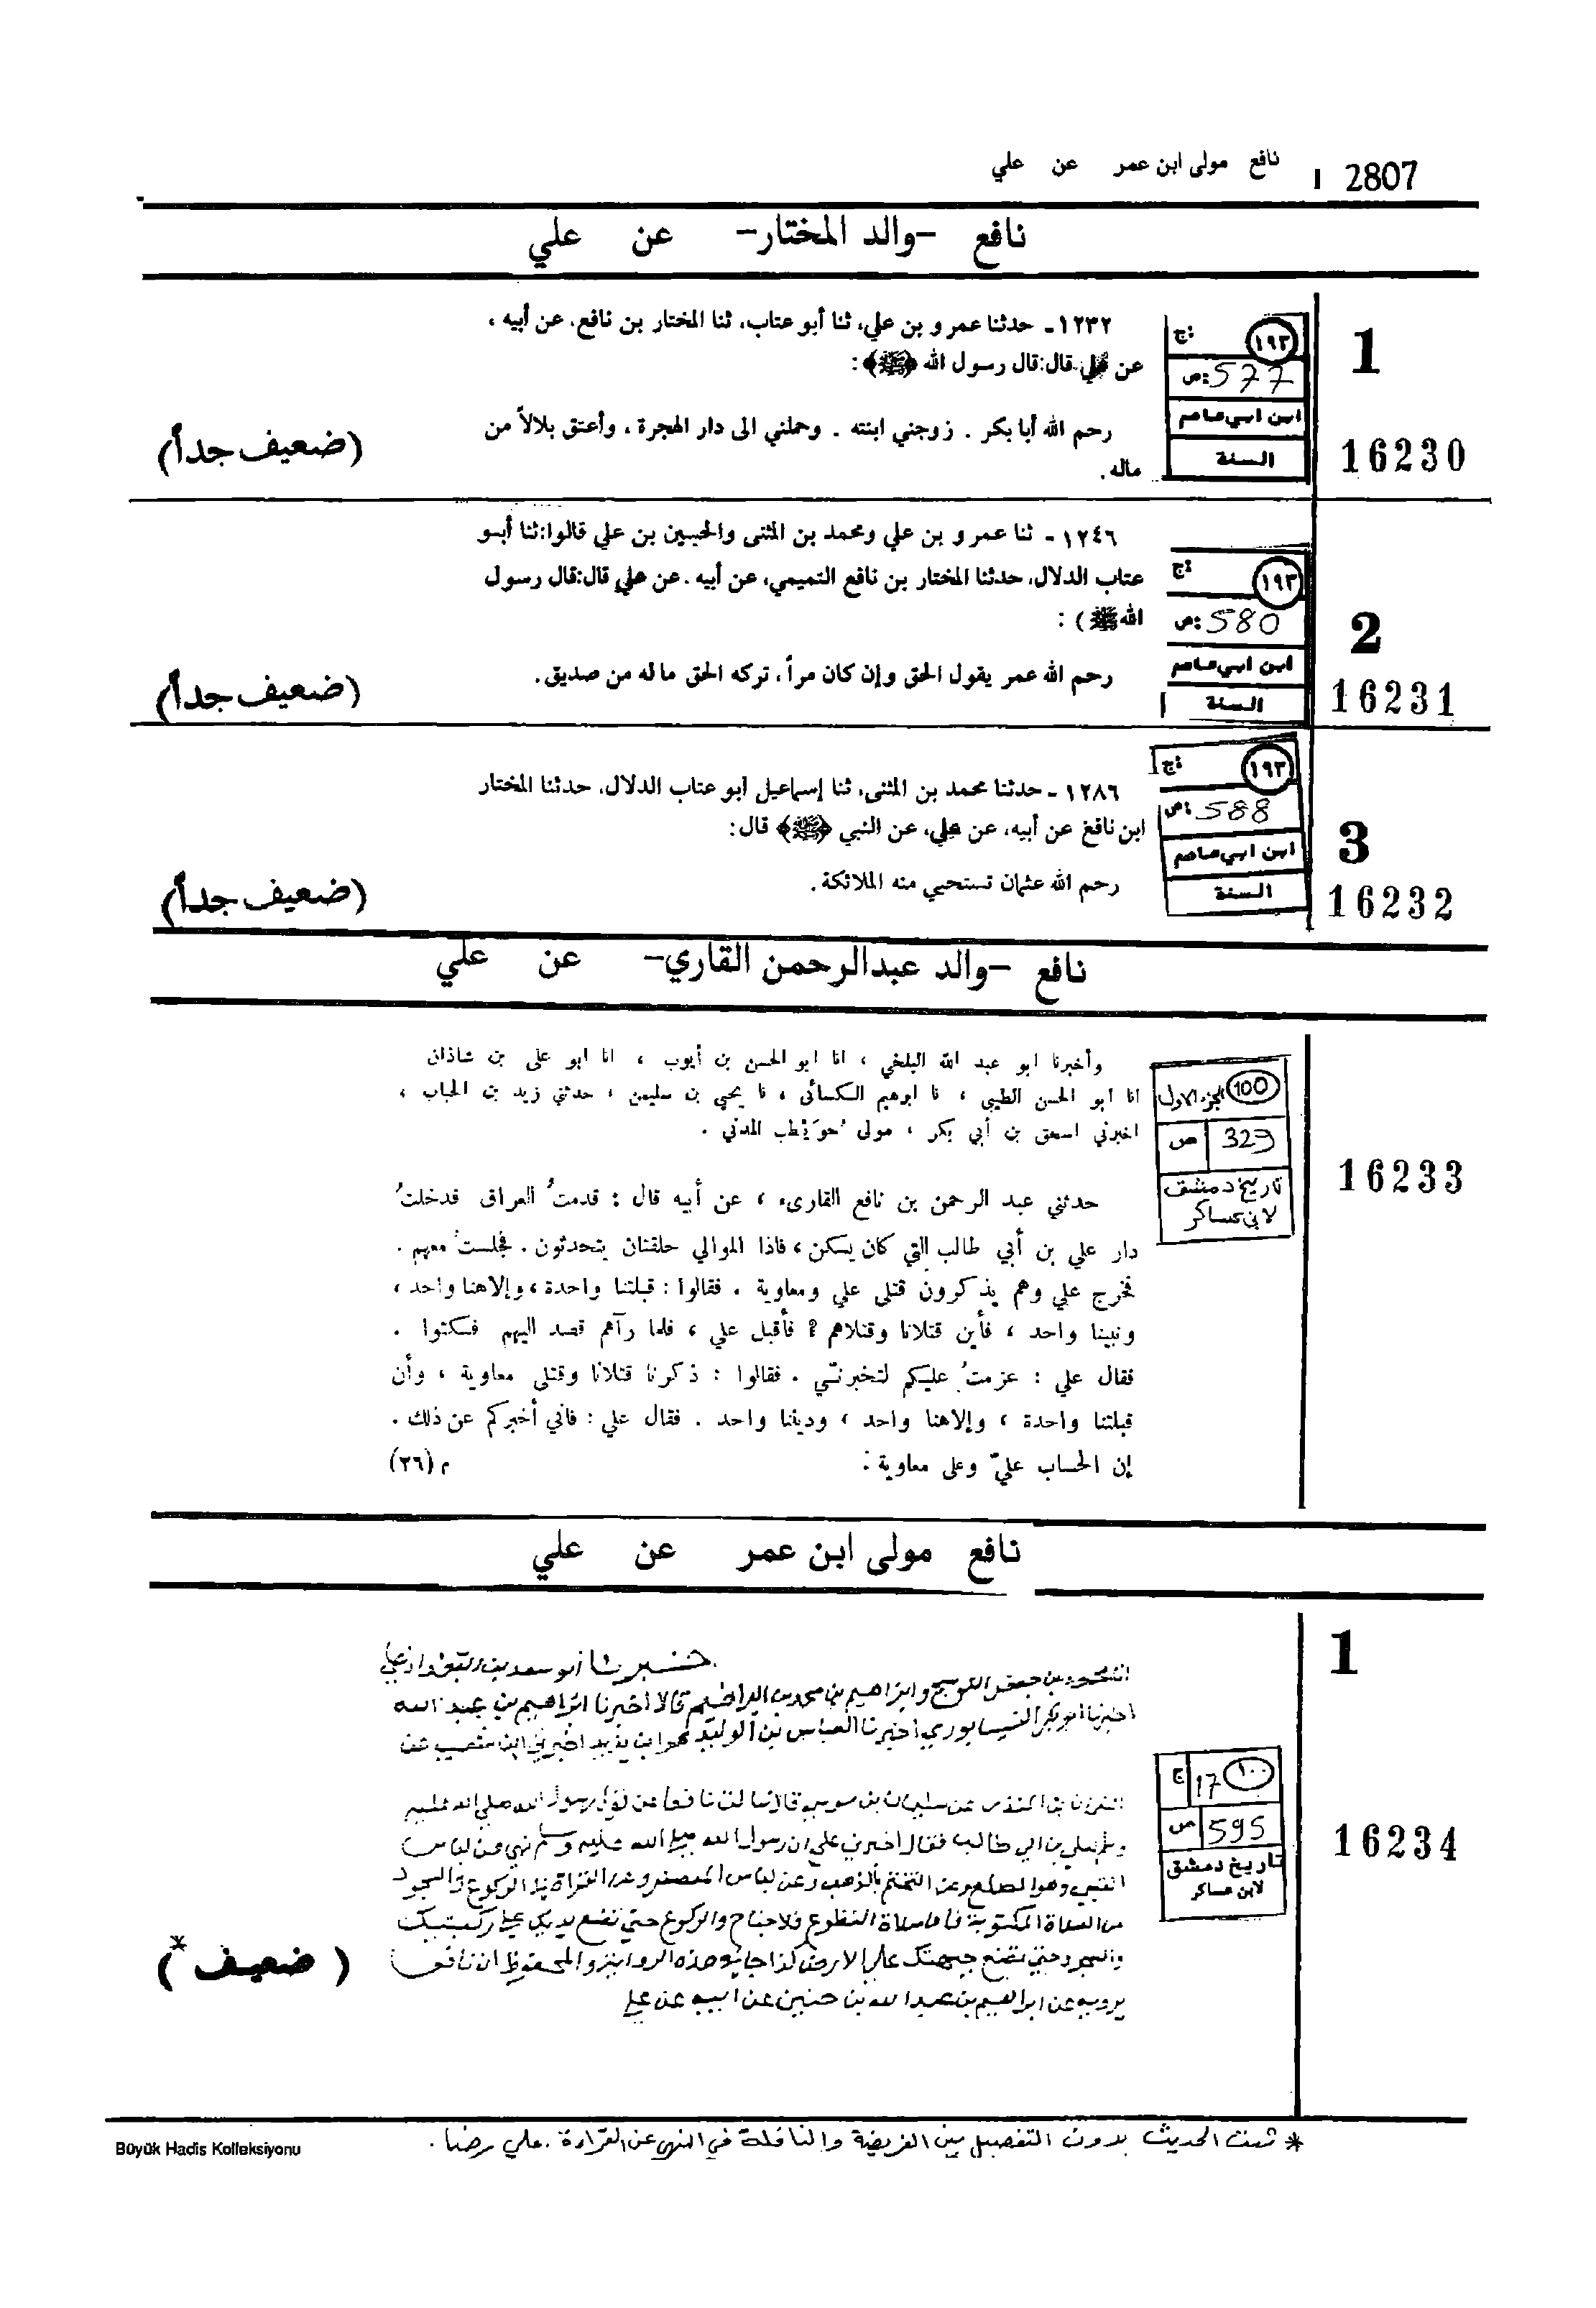 2807 ا نافع مولى ابن عمر عن علي
نافع -والد المختار- عن علي
1
١٩٣ ج:
577 ص:
ابن ابي عاصم
السنة
16230
١٢٣٢ - حدثنا عمرو بن علي، ثنا أبو عتاب، ثنا المختار بن نافع، عن أبيه ،
عن علي قال: قال رسول الله ﷺ :
رحم الله أبا بكر . زوجني ابنته . وحملني الى دار الهجرة ، وأعتق بلالاً من
ماله .
(ضعيف جداً)
2
١٩٣ ج:
580 ص:
ابن ابي عاصم
السنة
16231
١٢٤٦ - ثنا عمرو بن علي ومحمد بن المثنى والحسين بن علي قالوا: ثنا أبو
عتاب الدلال، حدثنا المختار بن نافع التميمي، عن أبيه . عن علي قال: قال رسول
الله ﷺ ) :
رحم الله عمر يقول الحق وإن كان مراً ، تركه الحق ما له من صديق .
(ضعيف جداً)
3
١٩٣ ج:
588 ص:
ابن ابي عاصم
السنة
16232
١٢٨٦ - حدثنا محمد بن المثنى، ثنا إسماعيل ابو عتاب الدلال، حدثنا المختار
ابن نافع عن أبيه، عن علي، عن النبي ﷺ قال:
رحم الله عثمان تستحيي منه الملائكة .
(ضعيف جداً)
نافع -والد عبدالرحمن القاري- عن علي
100 الجزء الاول
329 ص
تاريخ دمشق
لابن عساكر
16233
وأخبرنا ابو عبد الله البلخي ، انا ابو الحسن بن أيوب ، انا ابو علي بن شاذان
انا ابو الحسن الطيبي ، نا ابرهيم الكسائي ، نا يحيي بن سليمن ، حدثني زيد بن الحباب ،
اخبرني اسحق بن أبي بكر ، مولى حويطب المدني .
حدثني عبد الرحمن بن نافع القارىء ، عن أبيه قال : قدمتُ العراق فدخلتُ
دار علي بن أبي طالب التي كان يسكن ، فاذا الموالي حلقتان يتحدثون . فجلست معهم .
فخرج علي وهم يذكرون قتلى علي ومعاوية . فقالوا : قبلتنا واحدة ، وإلاهنا واحد ،
ونبينا واحد ، فأين قتلانا وقتلاهم ؟ فأقبل علي ، فلما رآهم قصد اليهم فسكتوا .
فقال علي : عزمتُ عليكم لتخبرنّي . فقالوا : ذكرنا قتلانا وقتلى معاوية ، وأن
قبلتنا واحدة ، وإلاهنا واحد ، وديننا واحد . فقال علي : فاني أخبركم عن ذلك .
إن الحساب عليّ وعلى معاوية . م (٢٦)
نافع مولى ابن عمر عن علي
1
١٠٠ 17 ج
595 ص
تاريخ دمشق
لابن عساكر
16234
اخبرنا أبو سعد بن البغدادي
محمود بن جعفر الكوسج وابراهيم بن محمد بن ابراهيم قالا اخبرنا ابراهيم بن عبد الله
اخبرنا ابو بكر النيسابوري اخبرنا العباس بن الوليد بن يزيد اخبرني ابن شعيب عن
بن المنذر عن سليمان بن موسى قال سالت نافعا عن قول رسول الله صلى الله عليه
وسلم لعلي بن ابي طالب فقال اخبرني علي ان رسول الله صلى الله عليه وسلم نهى عن لباس
القسي وعن التختم بالذهب وعن لباس المعصفر وعن القراة في الركوع والسجود
من الصلاة المكتوبة فاما صلاة التطوع فلا جناح والركوع حتى تضع يديك على ركبتيك
والسجود حتى تضع جبهتك على الارض كذا جا في هذه الرواية والمحفوظ ان نافعا
يرويه عن ابراهيم بن عبد الله بن حنين عن ابيه عن علي
(ضعيف*)
* ثبت الحديث بدون التفصيل بين الفريضة والنافلة في النهي عن القراءة . علي رضا .
Büyük Hadis Kolleksiyonu